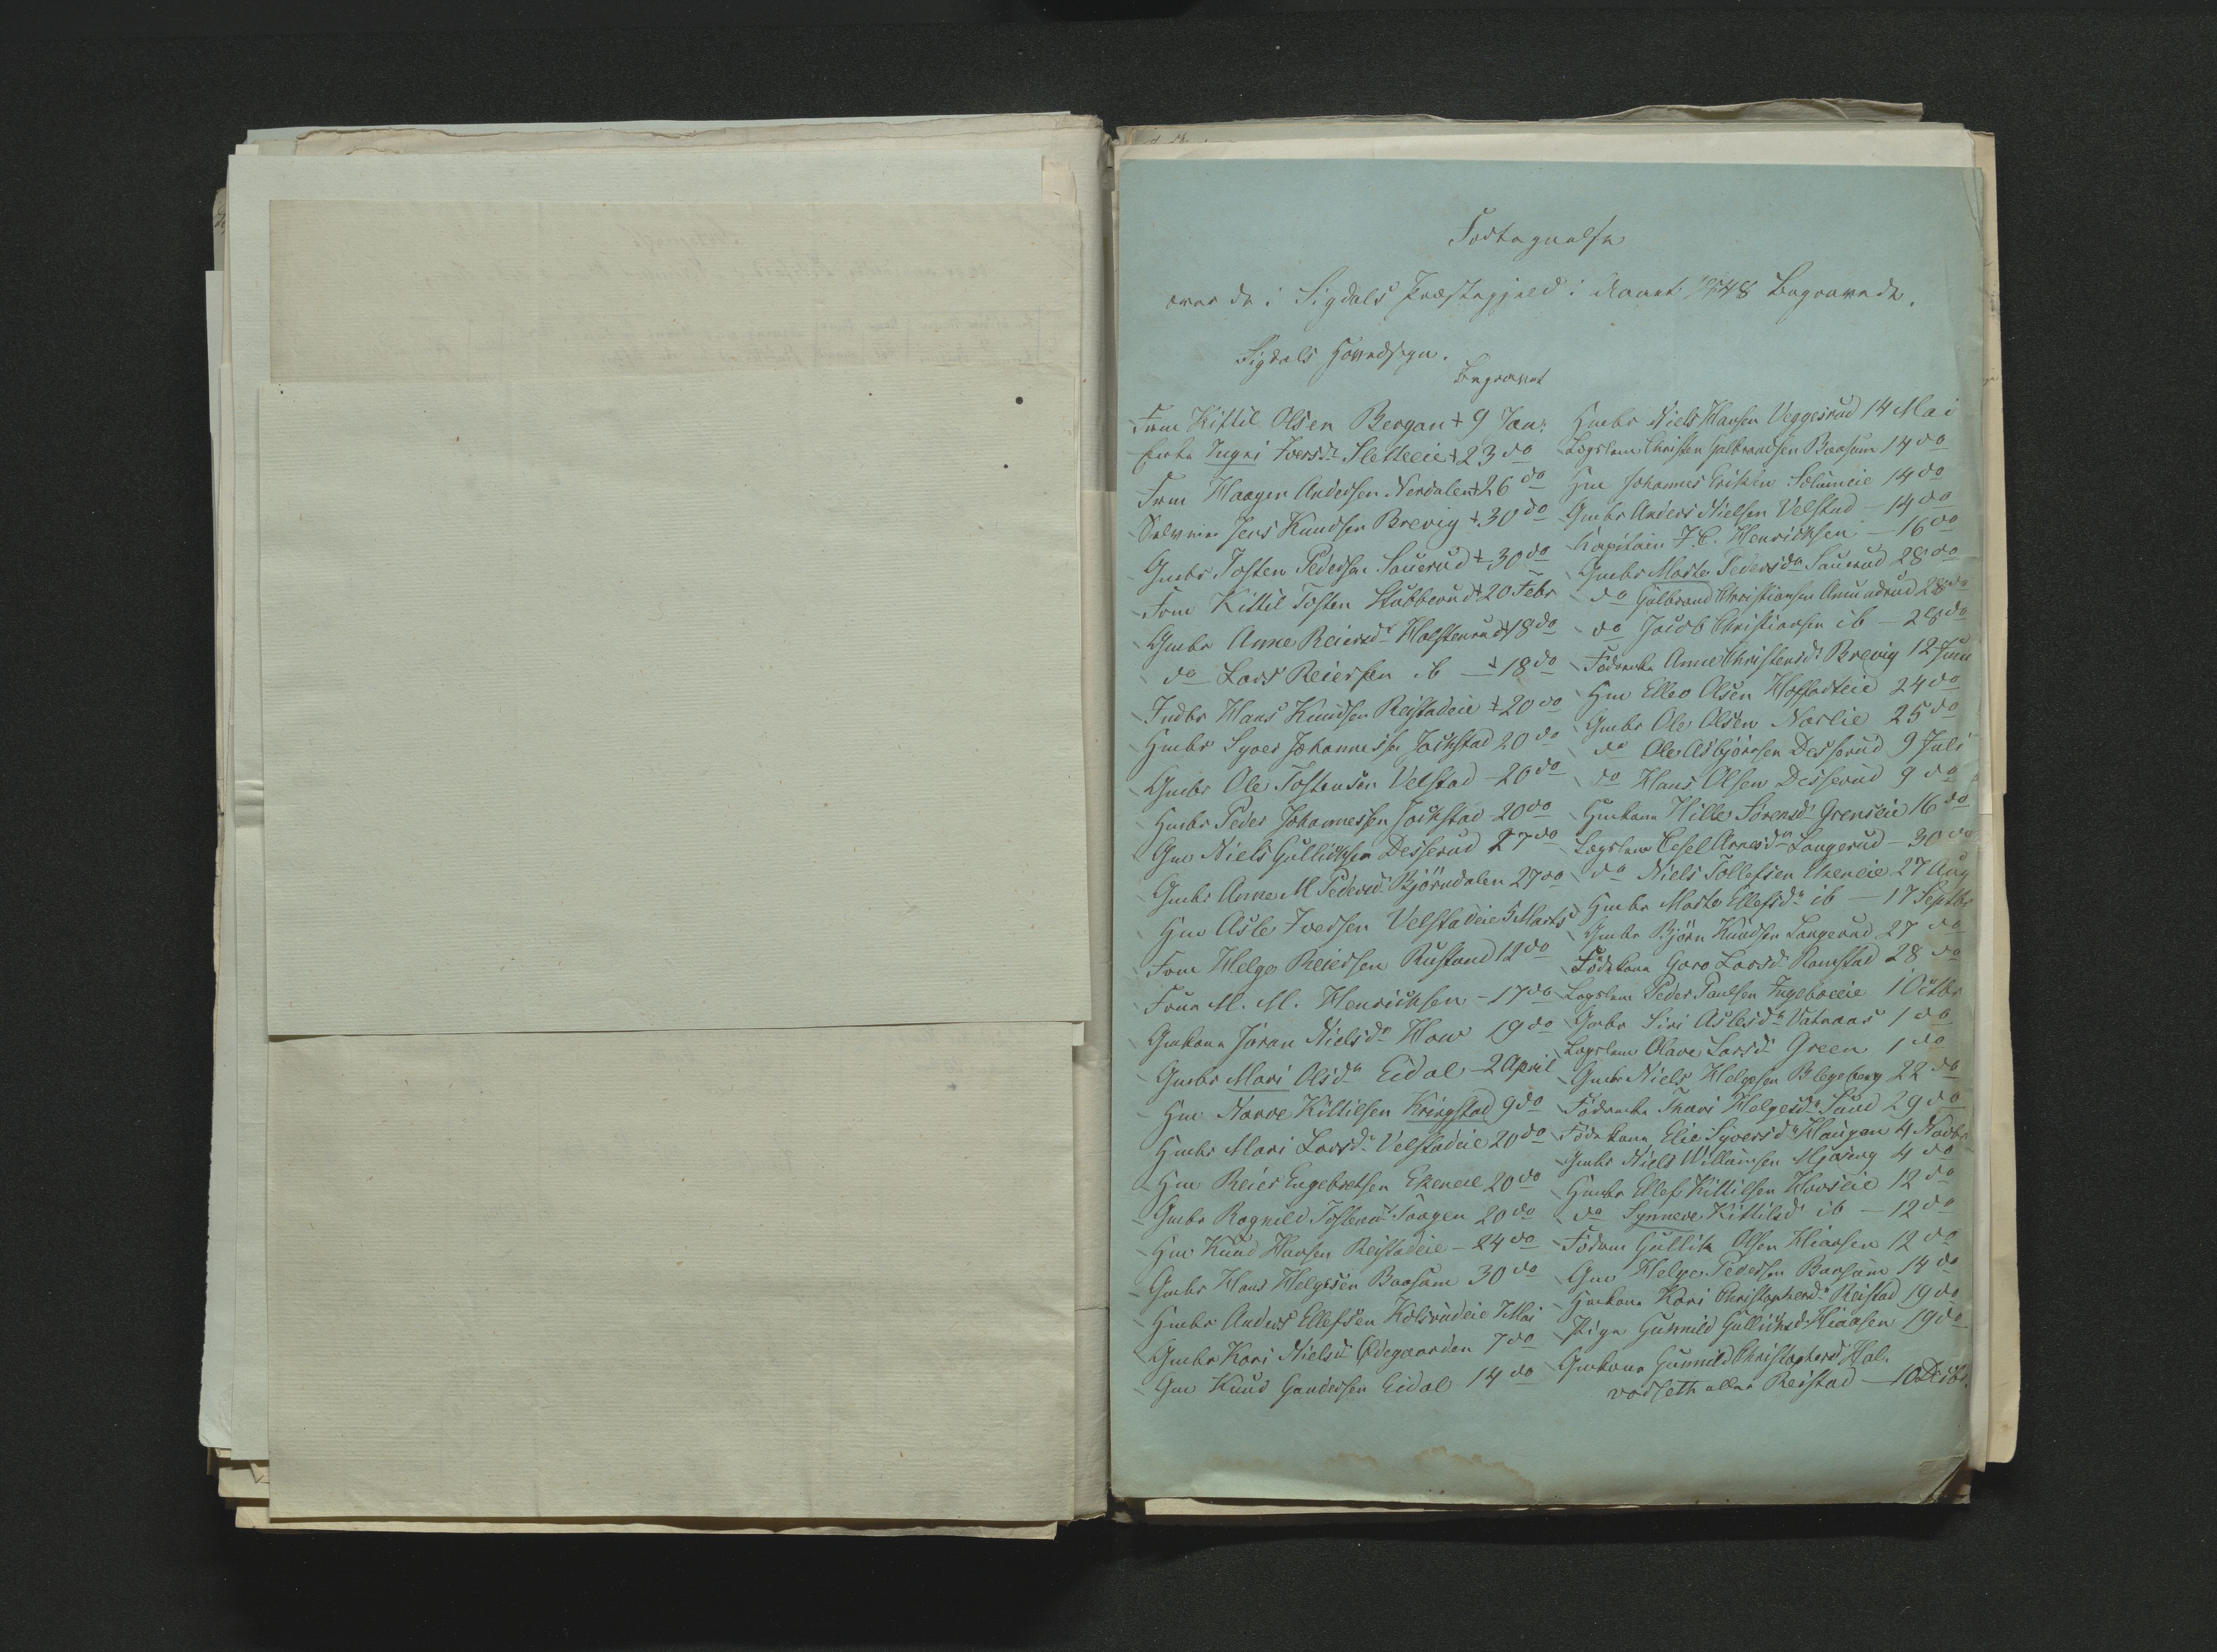 Fortegnelse
over de i Sigdals Præstegjeld i Aaret 1848 Begravede.
Sigdals Hovedsogn.
Begravet
Fm Kittil Olsen Bergan + 9 Jan:
Enke Ingri Iversdr Sletteeie + 23 do
Fm Haagen Andersen Nerdalen + 26 do
Jens Knudsen Brevig + 30 do
Gmbr Tosten Pedersen Sauerud + 30 do
Fm Kittil Tosten Stubberud + 20 Febr
Gmbr Anne Reiersdr Holstenrud + 18 do
do Lars Reiersen ib — + 18 do
Indbr Hans Knudsen Reistadeie + 20 do
Hmbr Syver Johannessen Jochstad 20 do
Gmbr Ole Tostensen Velstad - 20 do
Hmbr Peder Johannessen Jochstad 20 do
Gm Niels Gullichsen Desserud 27 do
Gmbr Anne M Pedersdr Bjørndalen 27 do
Hm Asle Iversen Velstadeie 5 Marts
Fm Helge Reiersen Rustand 12 do
Frue M. M. Henrichsen - 17 do
Gmkone Jøran Nielsdr How 19 do
Gmbr Mari Olsdr Eidal - 2 April
Hm Narve Kittilsen Kringstad 9 do
Hmbr Mari Larsdr Velstadeie 20 do
Hm Reier Engebretsen Ekeneie 20 do
Gmbr Ragnild Tostensdr 20 do
Hm Knud Hansen Reistadeie - 24 do
Gmbr Hans Helgesen Baasum 30 do
Hmbr Anders Ellefsen Kolsrudeie Mai
Gmbr Kari Nielsdr Ødegaarden 7 do
Gm Knud Gundersen Eidal 14 do
Hmbr Niels Hansen Veggesrud 14 Mai
Lægslem Christen Gulbrandsen Baasum 14 do
Hm Johannes Eriksen 14 do
Gmbr Anders Nielsen Velstad - 14 do
Kapitain F. C. Henrichsen - 16 do
Gmbr Marte Pedersdr Sauerud 28 do
do Gulbrand Christiansen Amundrud 28 do
do Jacob Christiansen ib - 28 do
Føderenke Anne Christensdr Brevig 12 Juni
Hm Ellev Olsen Hoffarteie 24 do
Gmbr Ole Olsen Norlie 25 do
do Ole Asbjørnsen Desserud 9 Juli
do Hans Olsen Desserud 9 do
Hmkone Hille Sørensdr Grenseie 16 do
Lægslem Cesel Arnesdr Langerud - 30 do
do Niels Tollefsen Ekeneie 27 Aug
Hmbr Marte Ellefsdr ib — 17 Septbr
Gmbr Bjørn Knudsen Langerud 27 do
Fødekone Goro Larsdr Ramstad 28 do
Lægslem Peder Paulsen 1 Octbr
Gmbr Siri Aslesdr Vatnaas 1 do
Lægslem Olave Larsdr Green 1 do
Gmbr Niels Helgesen Blegeberg 22 do
Føderenke Thuri Helgesdr Sund 29 do
Fødekone Elie Syversdr Haugen 4 Novbr
Gmbr Niels Williamsen 4 do
Hmbr Ellef Kittilsen Hovseie 12 do
do Synneve Kittilsdr ib — 12 do
Føderm Gullik Olsen Kiaasen 12 do
Gm Helge Pedersen Baasum 14 do
Hmkone Kari Christophersdr Reistad 19 do
Pige Gunnild Gullichsdr Kiaasen 19 do
Gmkone Gunnild Christophersdr Hal-
vorseth eller Reistad — 10 Decbr.